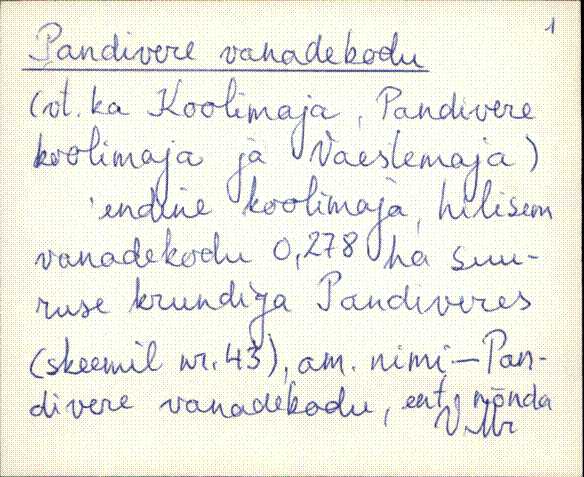 1
Pandivere vanadekodu
(vt. ka Koolimaja, Pandivere
koolimaja ja Vaestemaja)
endine koolimaja, hilisem
vanadekodu 0,278 ha suu-
ruse krundiga Pandiveres
(skeemil nr. 43), am. nimi – Pan-
divere vanadekodu, ent nõnda
V. Mr